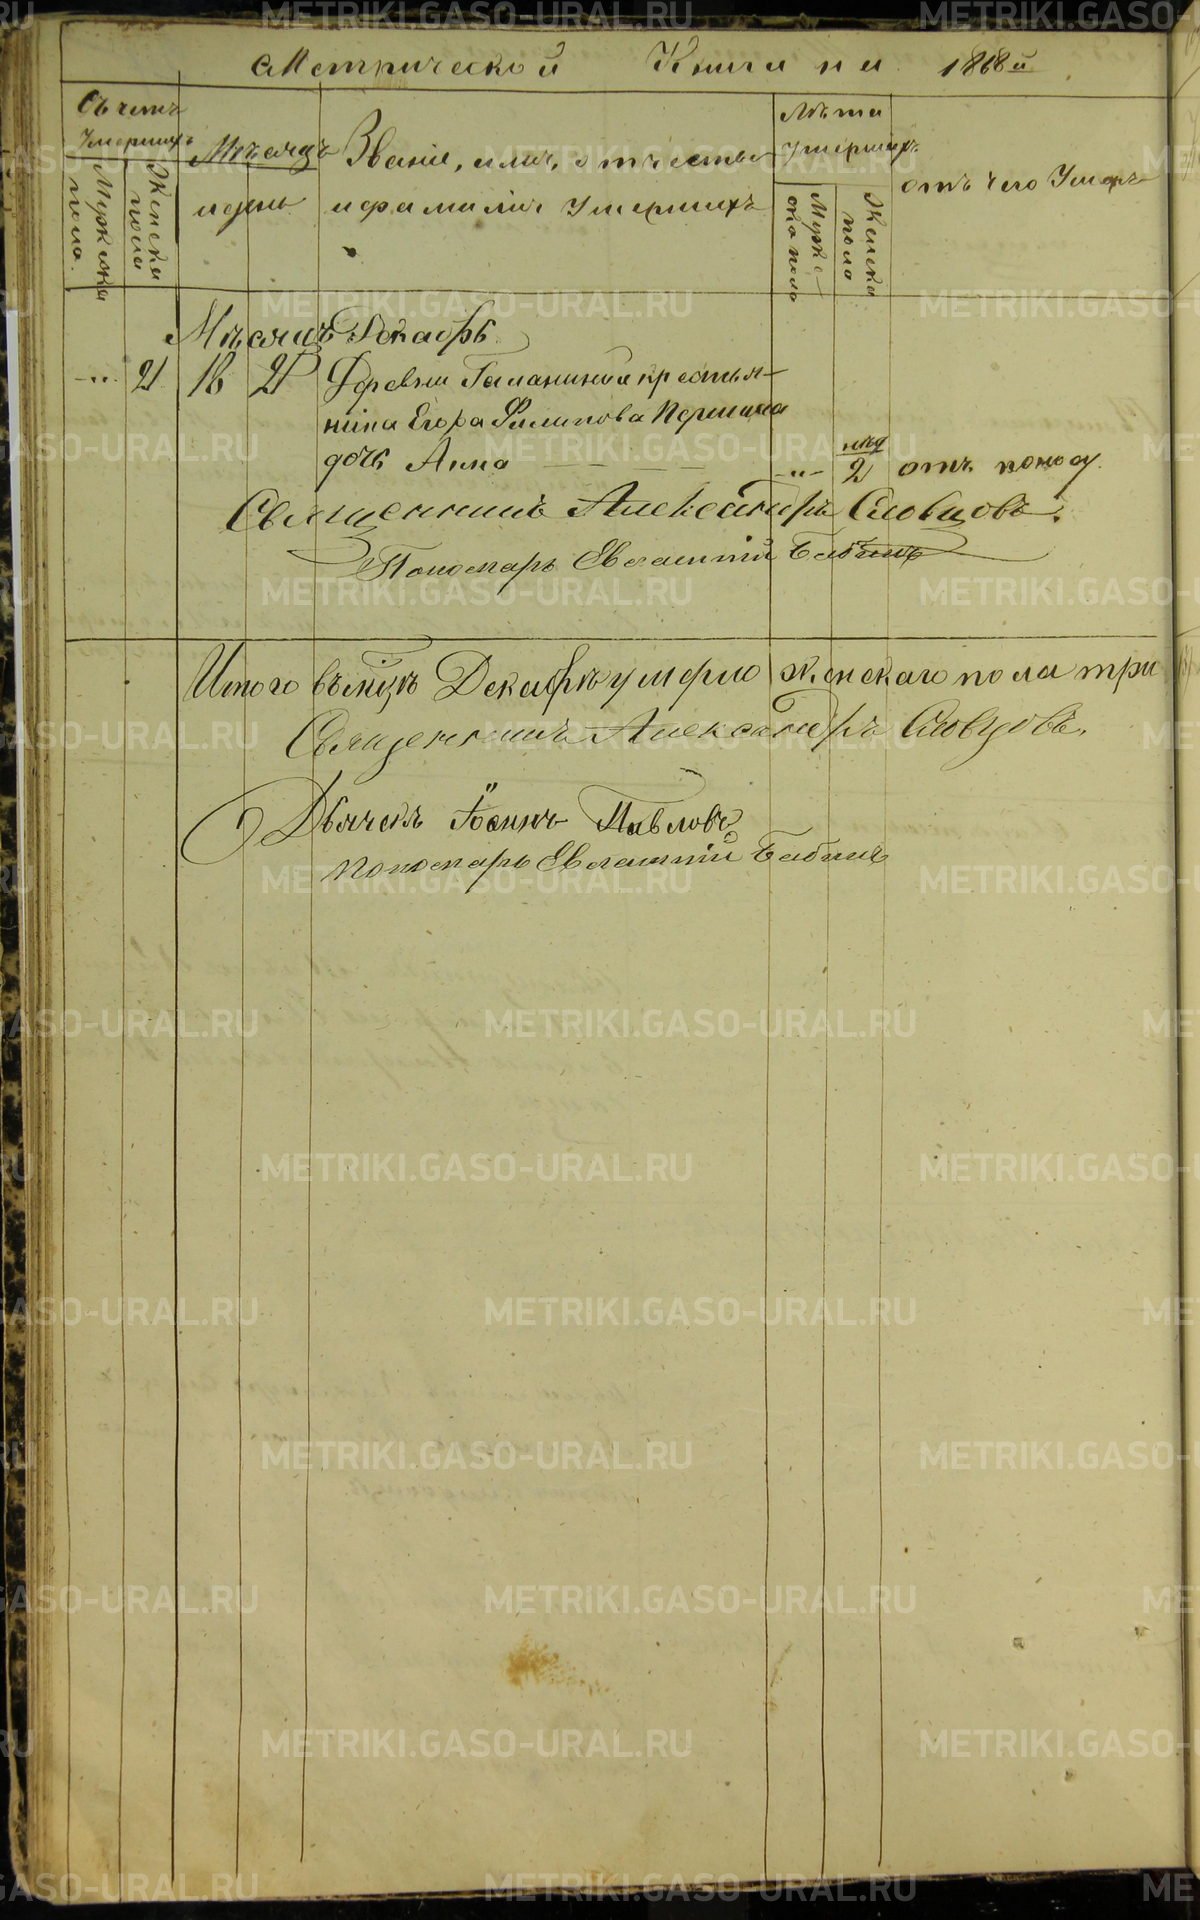 Метрической Книги на 1868й
Счетъ умершихъ
Мужеска пола.
Женска пола
Мѣсяцъ и день
Званіе, имя, отчество и фамилія умершихъ
Лѣта умершихъ
Мужеска пола
Женска пола
отъ чего Умеръ
Мѣсяцъ Декабрь
-"- 2 18 21 Деревни Галаниной крестья-
нина Егора Филипова Першина
дочь Анна -"- нед 2 отъ поносу.
Священникъ Александръ Словцовъ.
Пономарь Евлампій Бабинъ
Итого въ мцѣ Декабрѣ умерло женскаго пола три
Священникъ Александръ Словцовъ.
Дьячекъ Іоаннъ Павловъ
Пономарь Евлампій Бабинъ
METRIKI.GASO-URAL.RU